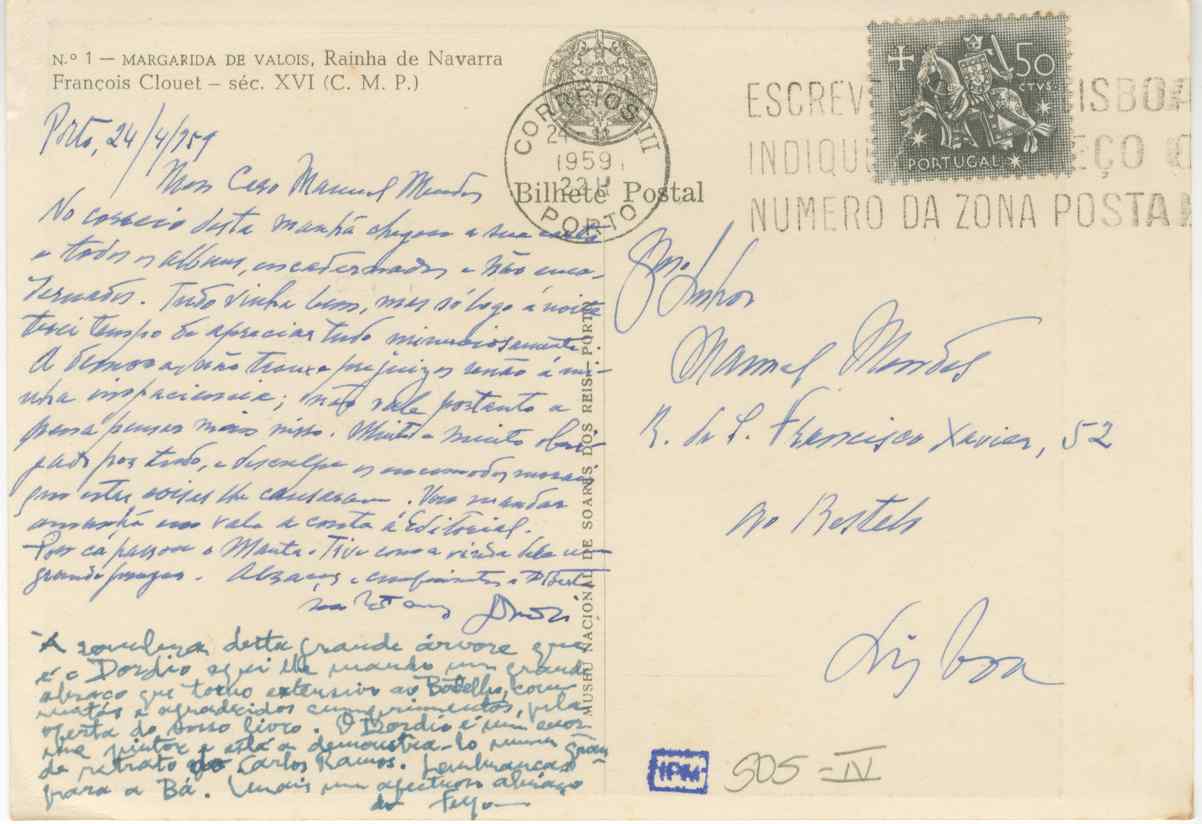 N.º 1 — MARGARIDA DE VALOIS, Rainha de Navarra
François Clouet – séc. XVI (C. M. P.)
Porto, 24/4/959
Meu Caro Manuel Mendes
No correio desta manhã chegou a sua carta
e todos os albuns, encadernados e não enca-
dernados. Tudo vinha bem, mas só logo á noite
terei tempo de apreciar tudo minuciosamente.
A demora não trouxe prejuizos senão á mi-
nha impaciencia; não vale portanto a
pena pensar mais nisso. Muito e muito obri-
gado por tudo, e desculpe os encomodos
que estas coisas lhe causaram. Vou mandar
amanhã em vale a conta á Editorial.
Por cá passou o Manta. Tive com a vinda dele um
grande prazer. Abraços e
Dordio
A sombra desta grande árvore que
é o Dordio aqui lhe mando um grande
abraço que torno extensivo ao Botelho, com
muitos e agradecidos cumprimentos, pela
oferta do nosso livro. O Dordio é um enor-
me pintor e está a demonstra-lo num gran-
de retrato do Carlos Ramos. Lembranças
para a Bá. E mais um afectuoso abraço
do Feyo
MUSEU NACIONAL DE SOARES DOS REIS — PORTO
CORREIOS
24
1959
22 H
PORTO
Bilhete Postal
ESCREV ISBOA
INDIQU EÇO O
NUMERO DA ZONA POSTA
50
CTVS.
PORTUGAL
Exmo. Senhor
Manuel Mendes
R. de S. Francisco Xavier, 52
ao Restelo
Lisboa
IPM
505-IV